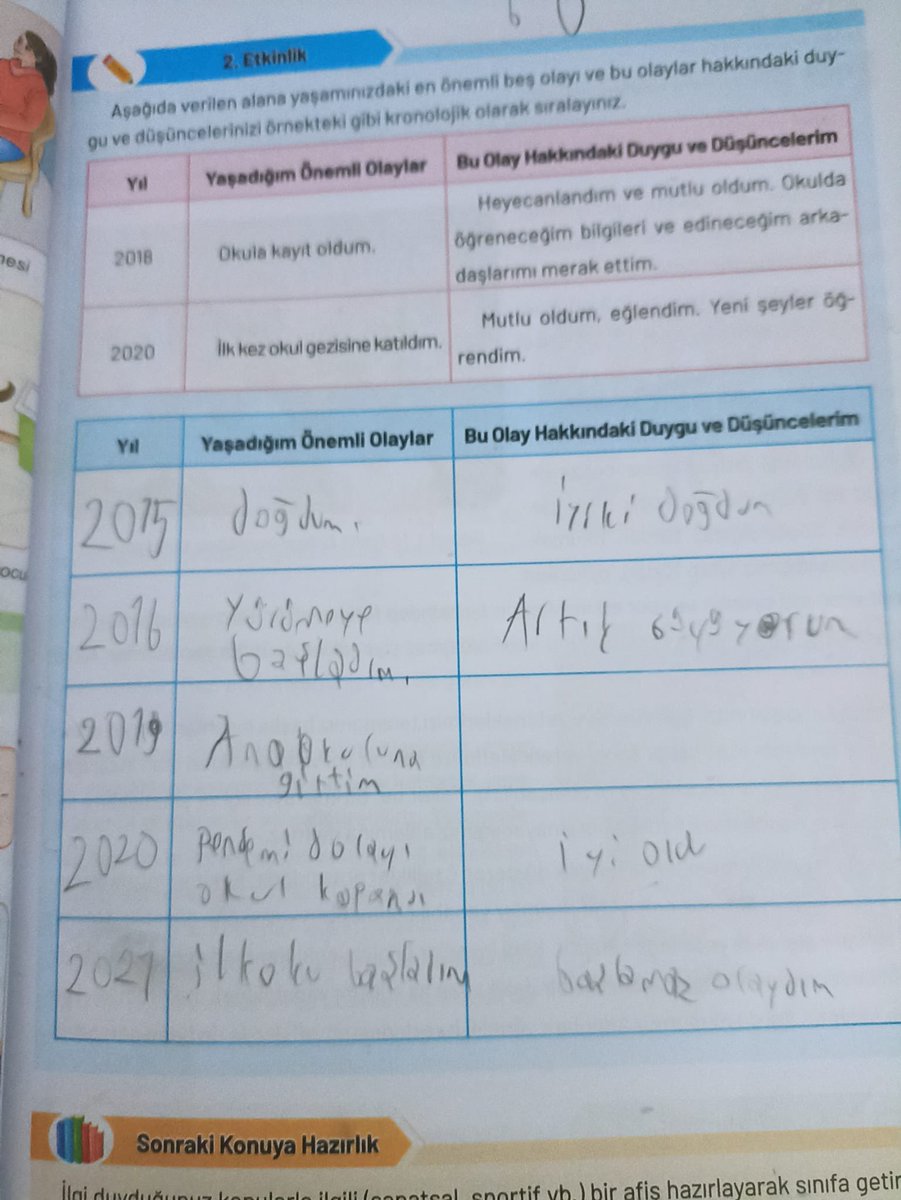 2. Etkinlik
Aşağıda verilen alana yaşamınızdaki en önemli beş olayı ve bu olaylar hakkındaki duy-
gu ve düşüncelerinizi örnekteki gibi kronolojik olarak sıralayınız.
Yıl Yaşadığım Önemli Olaylar Bu Olay Hakkındaki Duygu ve Düşüncelerim
Heyecanlandım ve mutlu oldum. Okulda
2018 Okula kayıt oldum. öğreneceğim bilgileri ve edineceğim arka-
daşlarımı merak ettim.
Mutlu oldum, eğlendim. Yeni şeyler öğ-
2020 İlk kez okul gezisine katıldım. rendim.
Yıl Yaşadığım Önemli Olaylar Bu Olay Hakkındaki Duygu ve Düşüncelerim
2015 doğdum. iyiki doğdun
2016 Yürümeye Artık
başladım.
2019 Anaokuluna
girtim
2020 Pendemi dolayı iyi old
okul kapandı
2021 ilkoku başlalım başlamaz olaydım
Sonraki Konuya Hazırlık
İlgi duyduğunuz konularla ilgili (sanatsal, sportif vb.) bir afiş hazırlayarak sınıfa getir
nesi
ocu